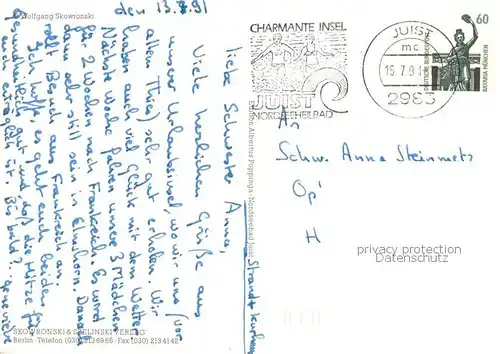 Wolfgang Skowronski
den 13.7.91
liebe Schwester Anna,
Viele herzlichen Grüße aus
unserer Urlaubsinsel, wo wir uns (vor
allem Thies) sehr gut erholen. Wir
haben auch viel Glück mit dem Wetter.
Nächste Woche fahren unsere 3 Mädchen
für 2 Wochen nach Frankreich. Es wird
dann sehr still sein in Elmshorn. Danach
reist Besuch aus Frankreich an.
Ich hoffe, es geht euch beiden
gesundheitlich gut und daß die Hitze für
euch erträglich ist. Bis bald?. Geneviève
SKOWRONSKI & VERLAG
Berlin · Telefon (030) 2136966 · Fax (030) 2134142
CHARMANTE INSEL
JUIST
NORDSEEHEILBAD
JUIST
mc
15.7.91
2983
60
DEUTSCHE BUNDESPOST
BAVARIA MÜNCHEN
An
Schw. Anna Steinmetz
Op'
H
privacy protection
Datenschutz